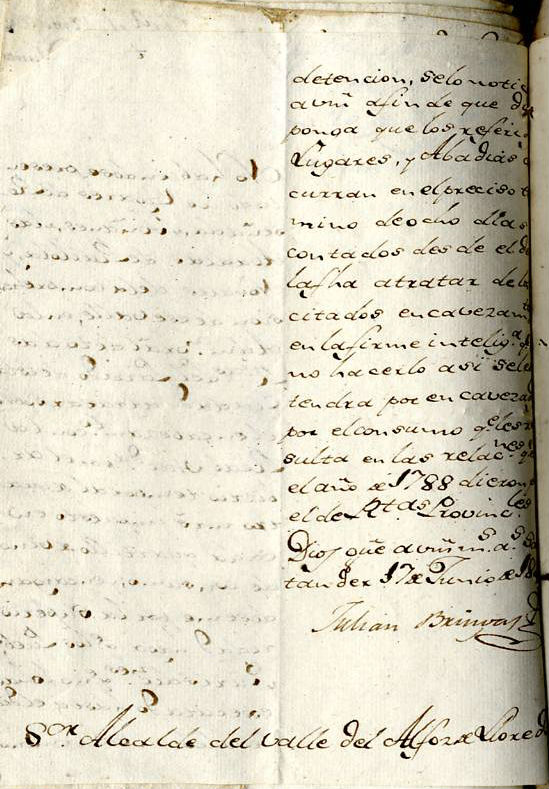 detencion, se lo notic
a vm̃ afin de que dis
ponga que los referid
Lugares, y Abadias
curran en el preciso
mino de ocho dias
contados desde el
la fha a tratar de los
citados encavezam.
en la firme intelig.ª q
no hacerlo asi se les
tendra por encaveza
por el consumo q.e les re
sulta en las relac.nes q.e
el año de 1788 dieron
el de R.tas Provinc.les
Dios güe a vm̃ m.s a.s San
tander 17 de Junio de 18
Julian Bringas
S.or Alcalde del valle del Alfoz de Llore